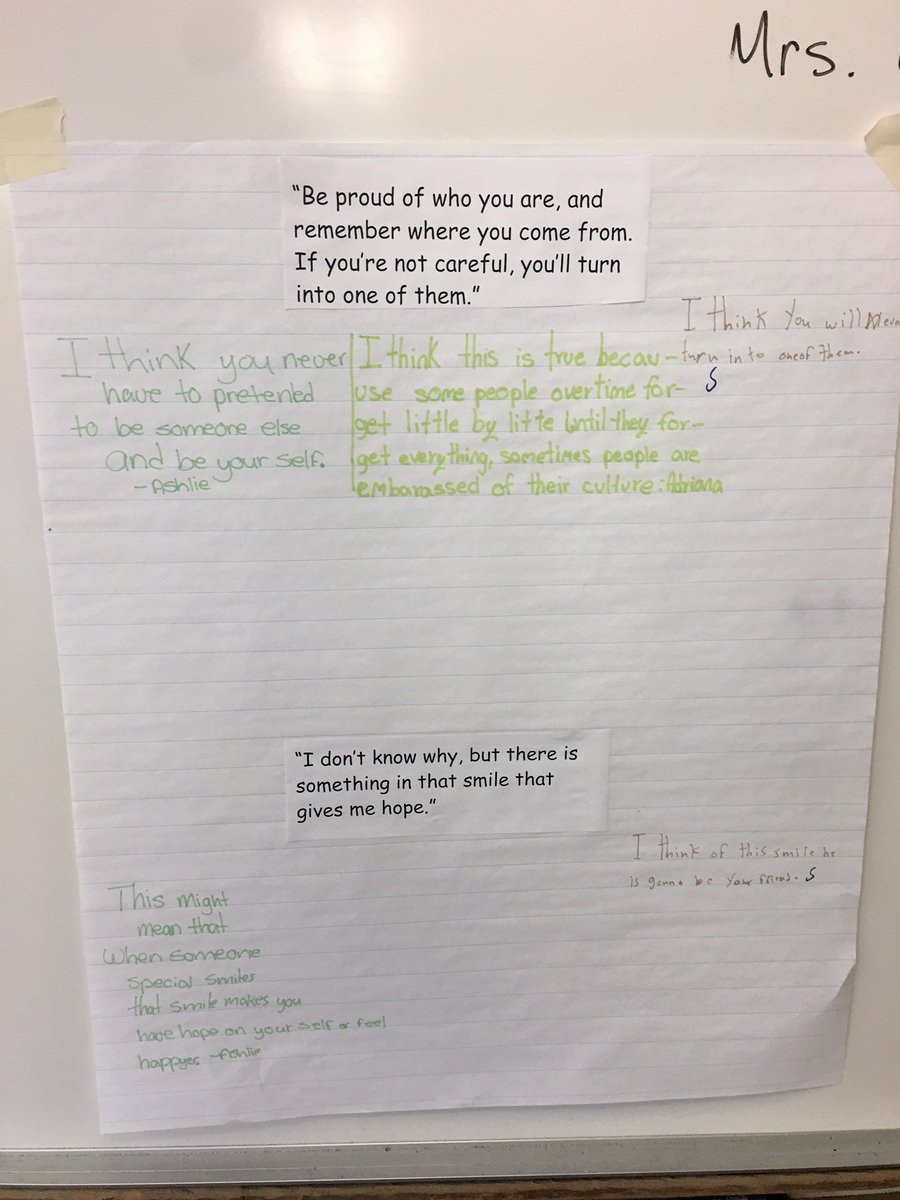 Mrs.
"Be proud of who you are, and
remember where you come from.
If you're not careful, you'll turn
into one of them."
I think you never
have to pretented
to be someone else
and be your self.
-Ashlie
I think this is true becau-
use some people overtime for-
get little by litte until they for-
get everything, sometimes people are
embarassed of their culture: Adriana
I think You will
turn in to one of them.
S
"I don't know why, but there is
something in that smile that
gives me hope."
I think of this smile he
is gonna be your friend. S
This might
mean that
When someone
special smiles
that smile makes you
have hope on your self or feel
happyer -Ashlie